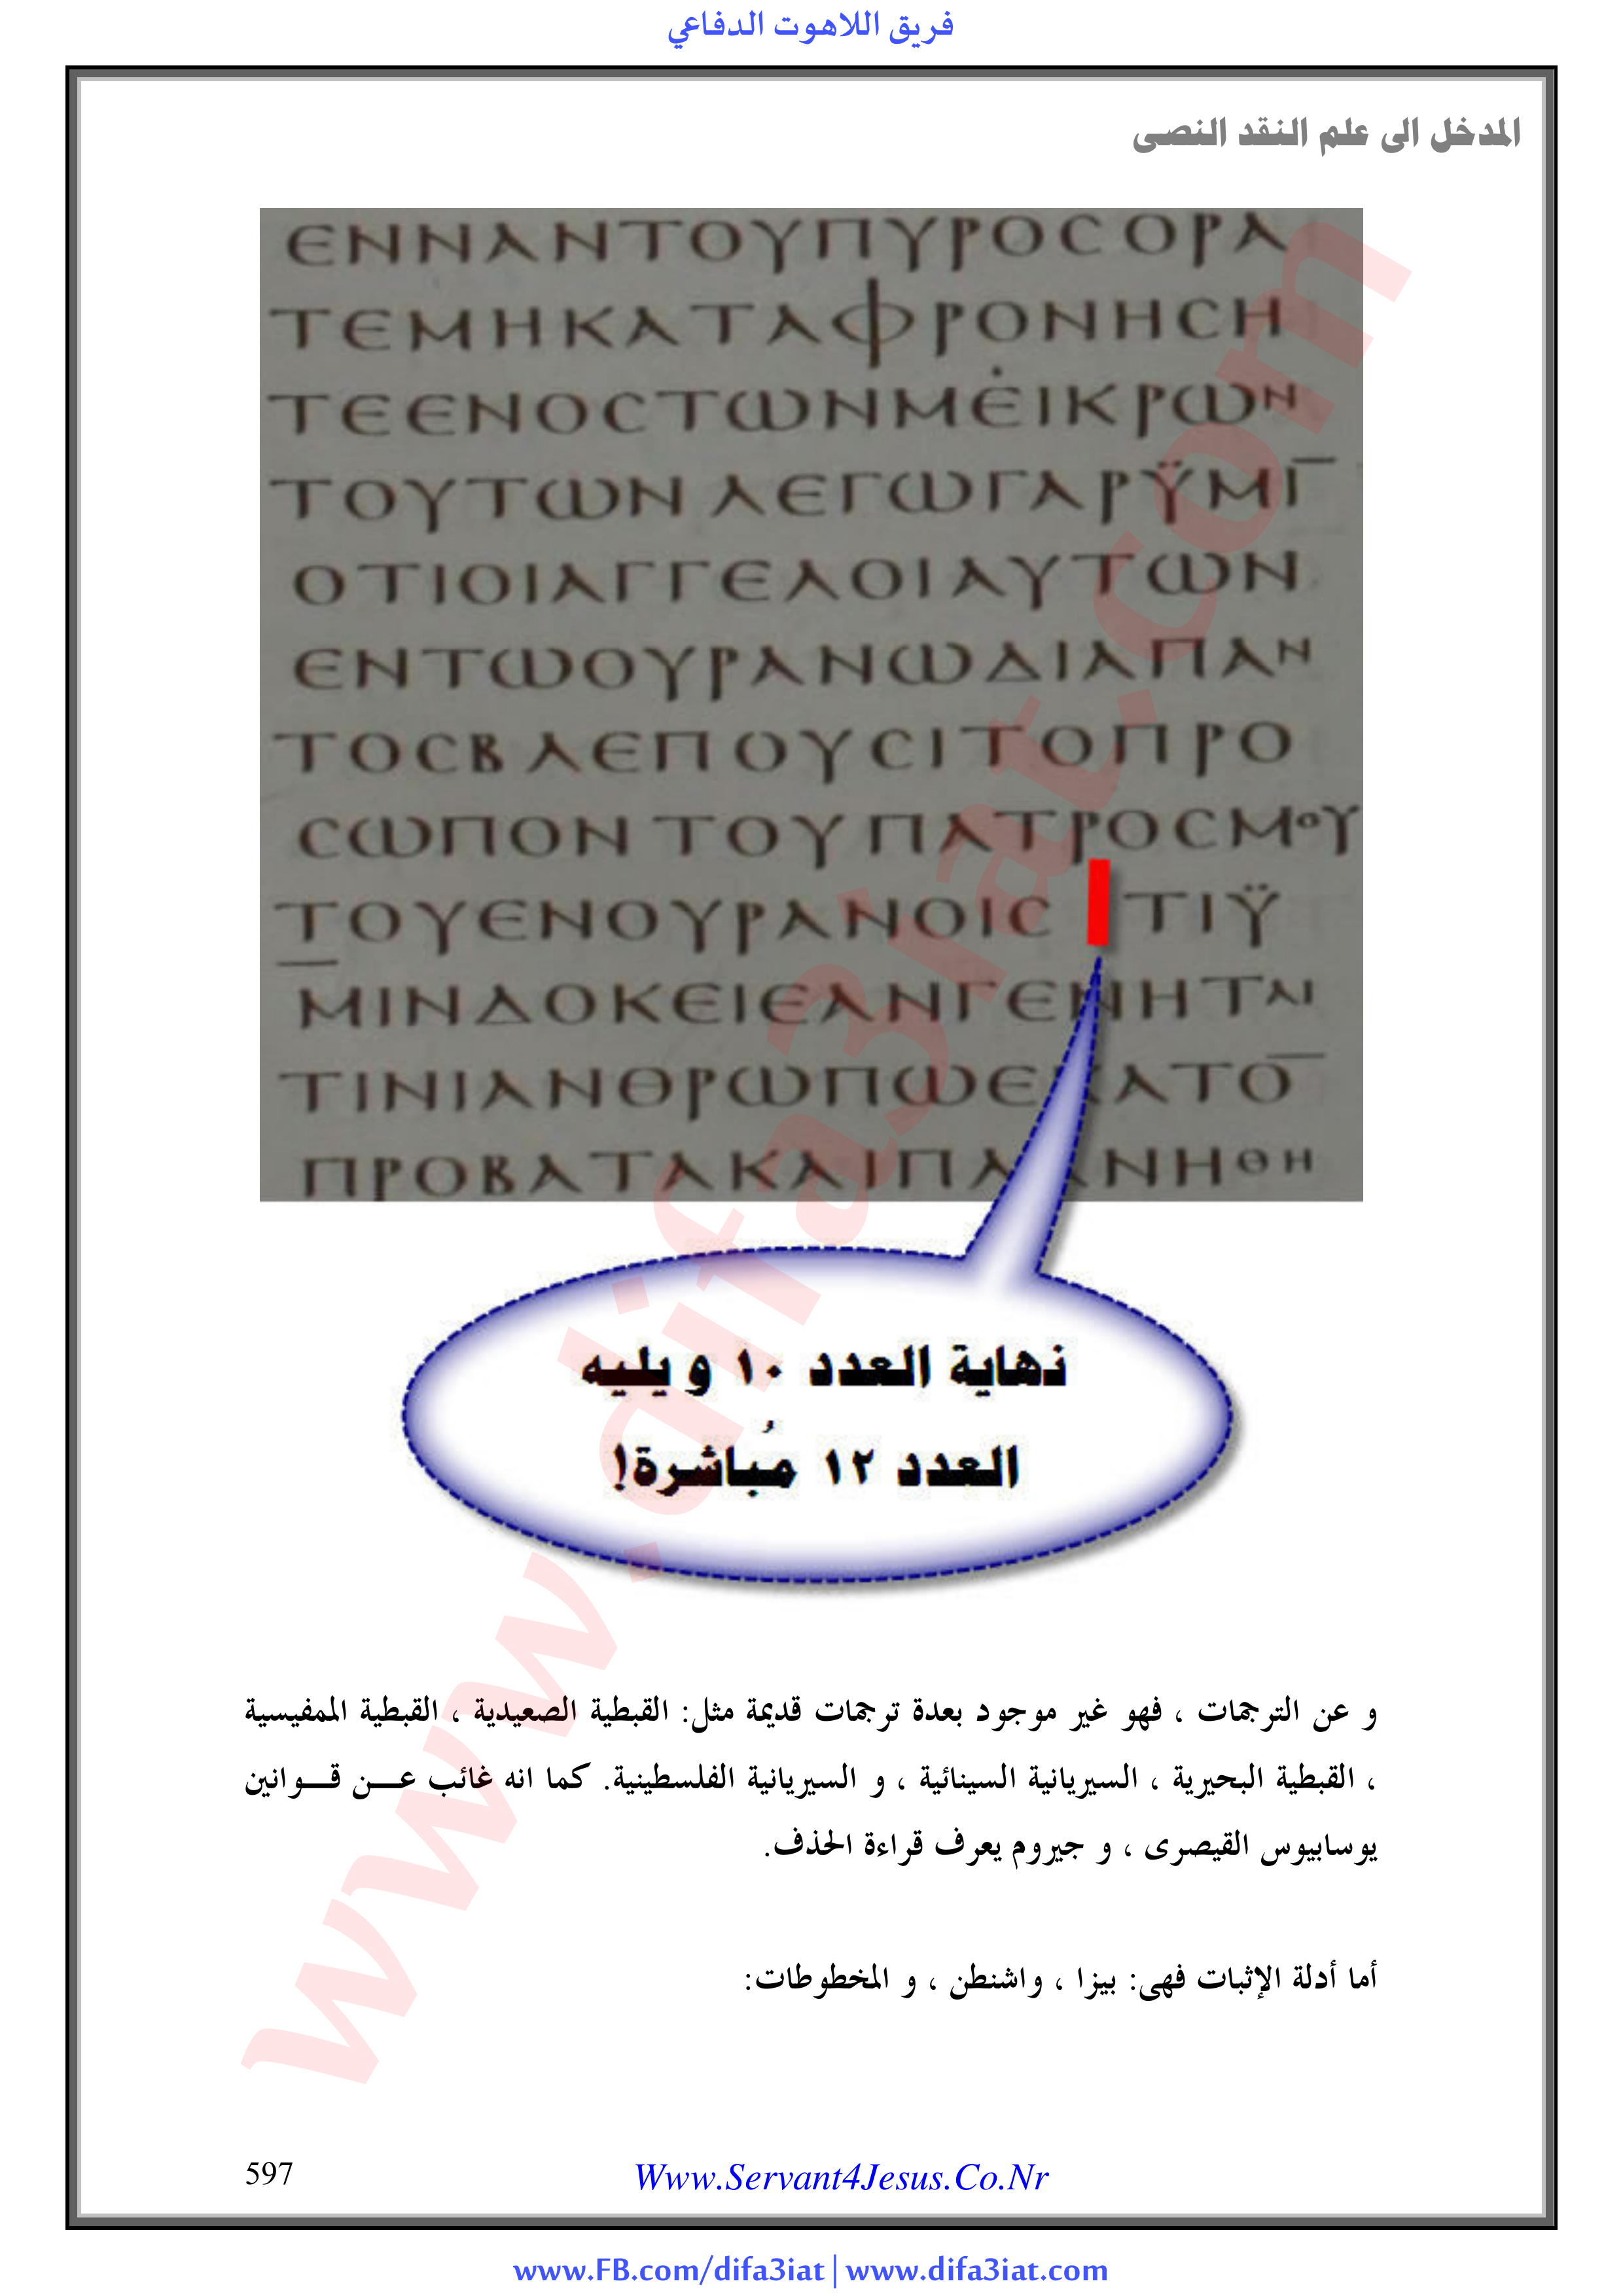 فريق اللاهوت الدفاعي
المدخل الى علم النقد النصى
ЄΝΝΑΝΤΟΥΠΥΡΟϹΟΡΑ
ΤЄΜΗΚΑΤΑΦΡΟΝΗϹΗ
ΤЄЄΝΟϹΤΩΝΜЄΙΚΡΩΝ
ΤΟΥΤΩΝΛЄΓΩΓΑΡΫΜΙ¯
ΟΤΙΟΙΑΓΓЄΛΟΙΑΥΤΩΝ
ЄΝΤΩΟΥΡΑΝΩΔΙΑΠΑΝ
ΤΟϹΒΛЄΠΟΥϹΙΤΟΠΡΟ
ϹΩΠΟΝΤΟΥΠΑΤΡΟϹΜΟΥ
ΤΟΥЄΝΟΥΡΑΝΟΙϹ ΤΙΫ
ΜΙΝΔΟΚЄΙЄΑΝΓЄΝΗΤΑΙ
ΤΙΝΙΑΝΘΡΩΠΩЄΚΑΤΟ¯
ΠΡΟΒΑΤΑΚΑΙΠΛΑΝΗΘΗ
نهاية العدد ١٠ و يليه
العدد ١٢ مُباشرة!
و عن الترجمات ، فهو غير موجود بعدة ترجمات قديمة مثل: القبطية الصعيدية ، القبطية الممفيسية
، القبطية البحيرية ، السيريانية السينائية ، و السيريانية الفلسطينية. كما انه غائب عـــن قـــوانين
يوسابيوس القيصرى ، و جيروم يعرف قراءة الحذف.
أما أدلة الإثبات فهى: بيزا ، واشنطن ، و المخطوطات:
597
Www.Servant4Jesus.Co.Nr
www.FB.com/difa3iat | www.difa3iat.com
www.difa3iat.com